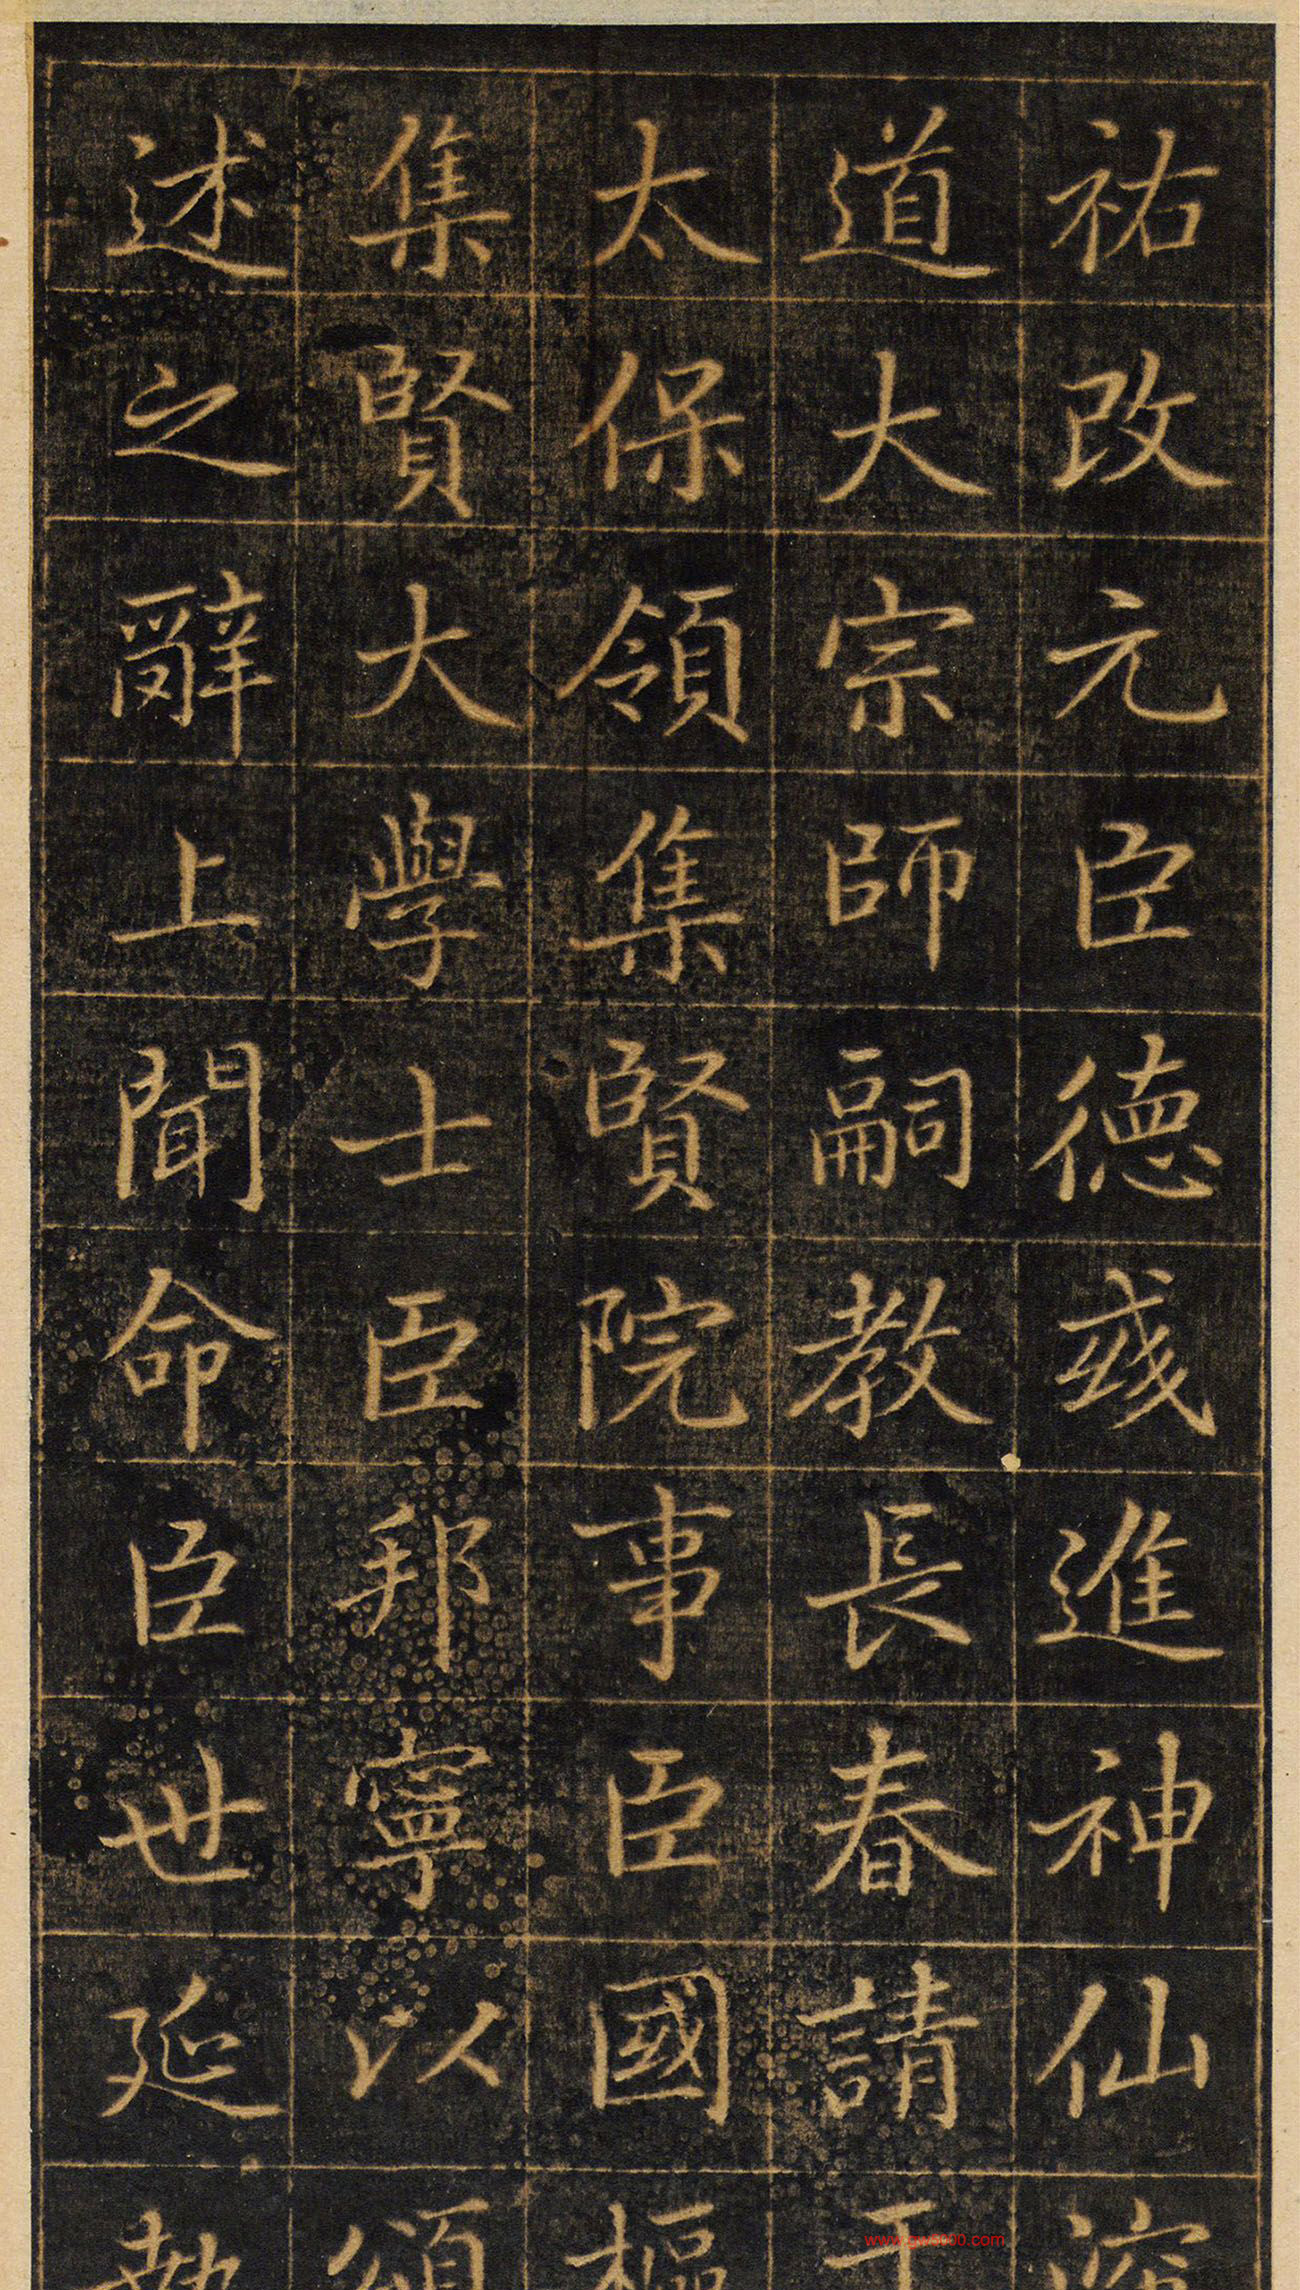 祐改元臣德彧進神仙
道大宗師嗣教長春請于
太保領集賢院事臣國樞
集賢大學士臣邦寧以頌
述之辭上聞命臣世延執
www.gw5000.com